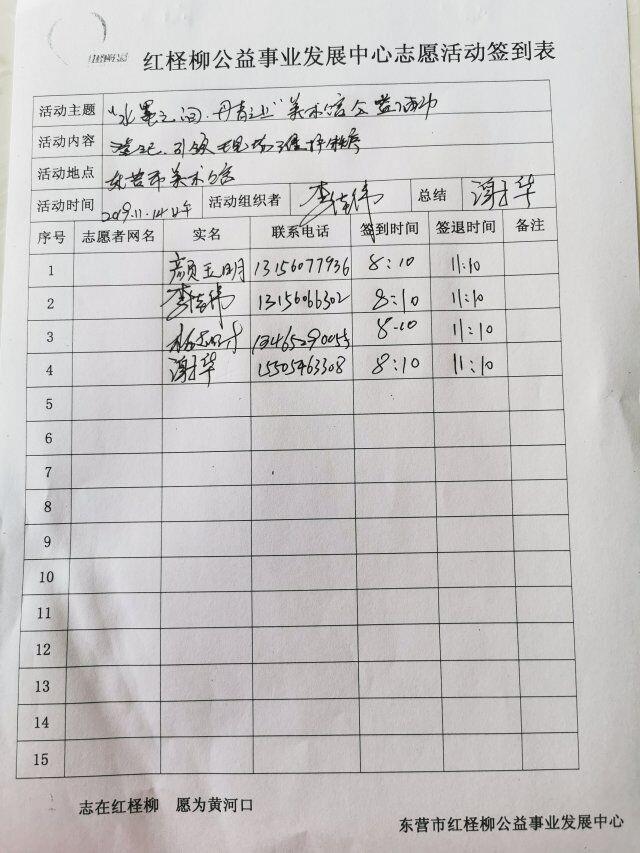 红柽柳公益事业发展中心志愿活动签到表
活动主题 “水墨之间·丹青之上”美术馆公益活动
活动内容 登记、引领、现场 维护秩序
活动地点 东营市美术馆
活动时间 2019.11.14上午 活动组织者 李 伟 总结 谢 华
序号 志愿者网名 实名 联系电话 签到时间 签退时间 备注
1 颜玉明 13156077936 8:10 11:10
2 李 伟 13156066302 8:10 11:10
3 13465290055 8-10 11:10
4 谢 华 15505463308 8:10 11:10
5
6
7
8
9
10
11
12
13
14
15
志在红柽柳 愿为黄河口
东营市红柽柳公益事业发展中心